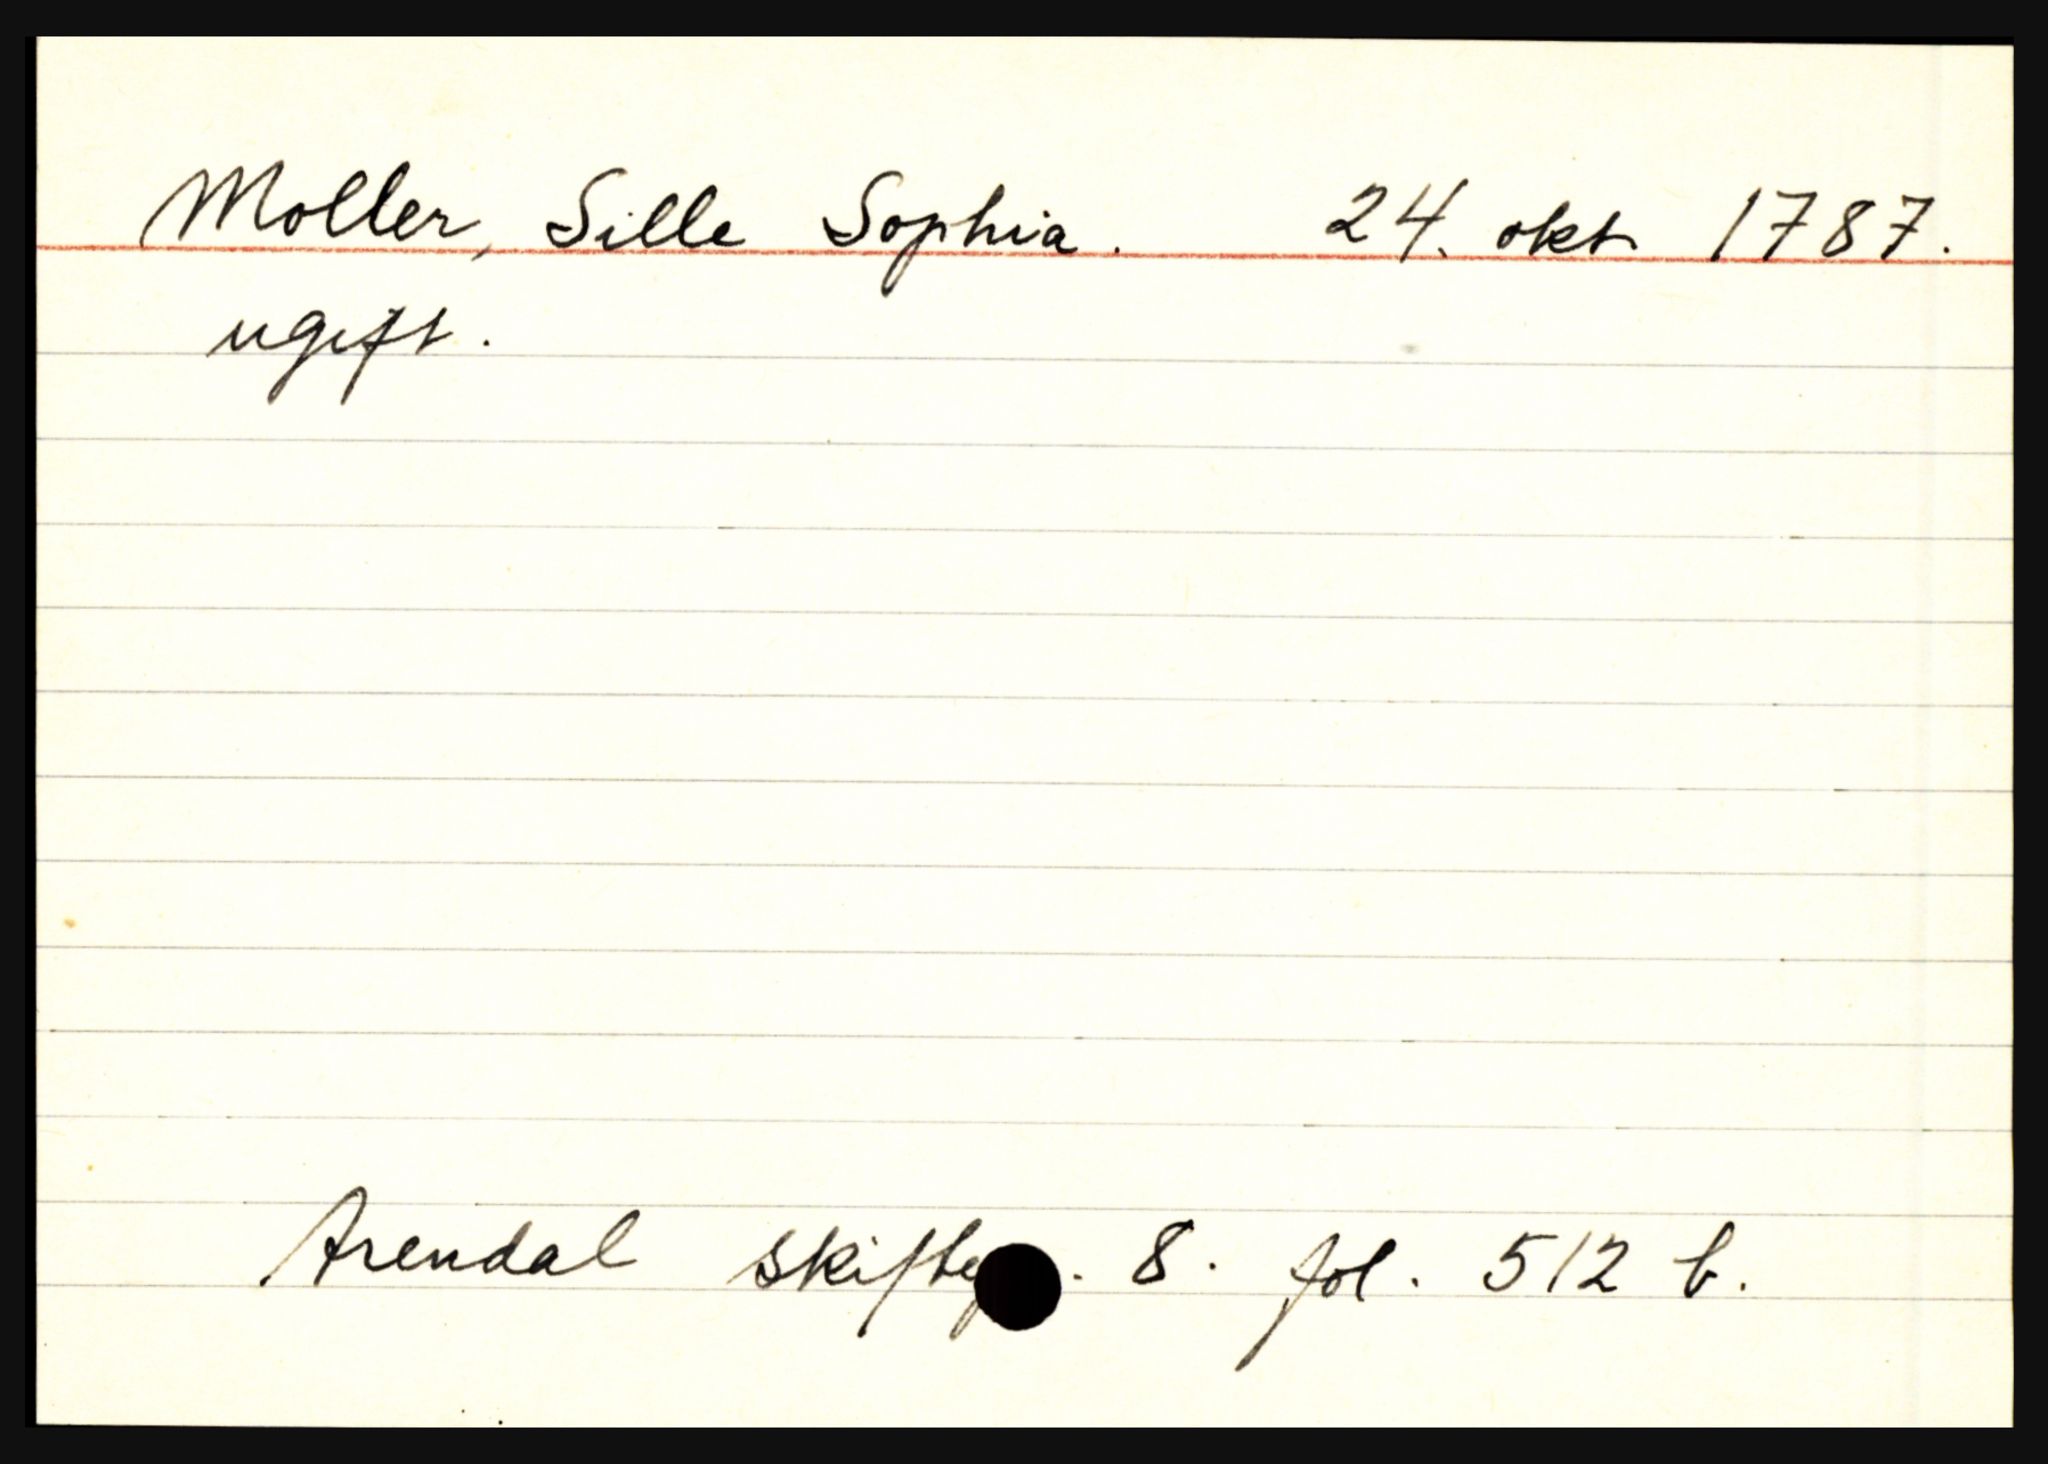 Moller, Sille Sophia. 24. okt. 1787.
ugift.
Arendal . 8. fol. 512 b.